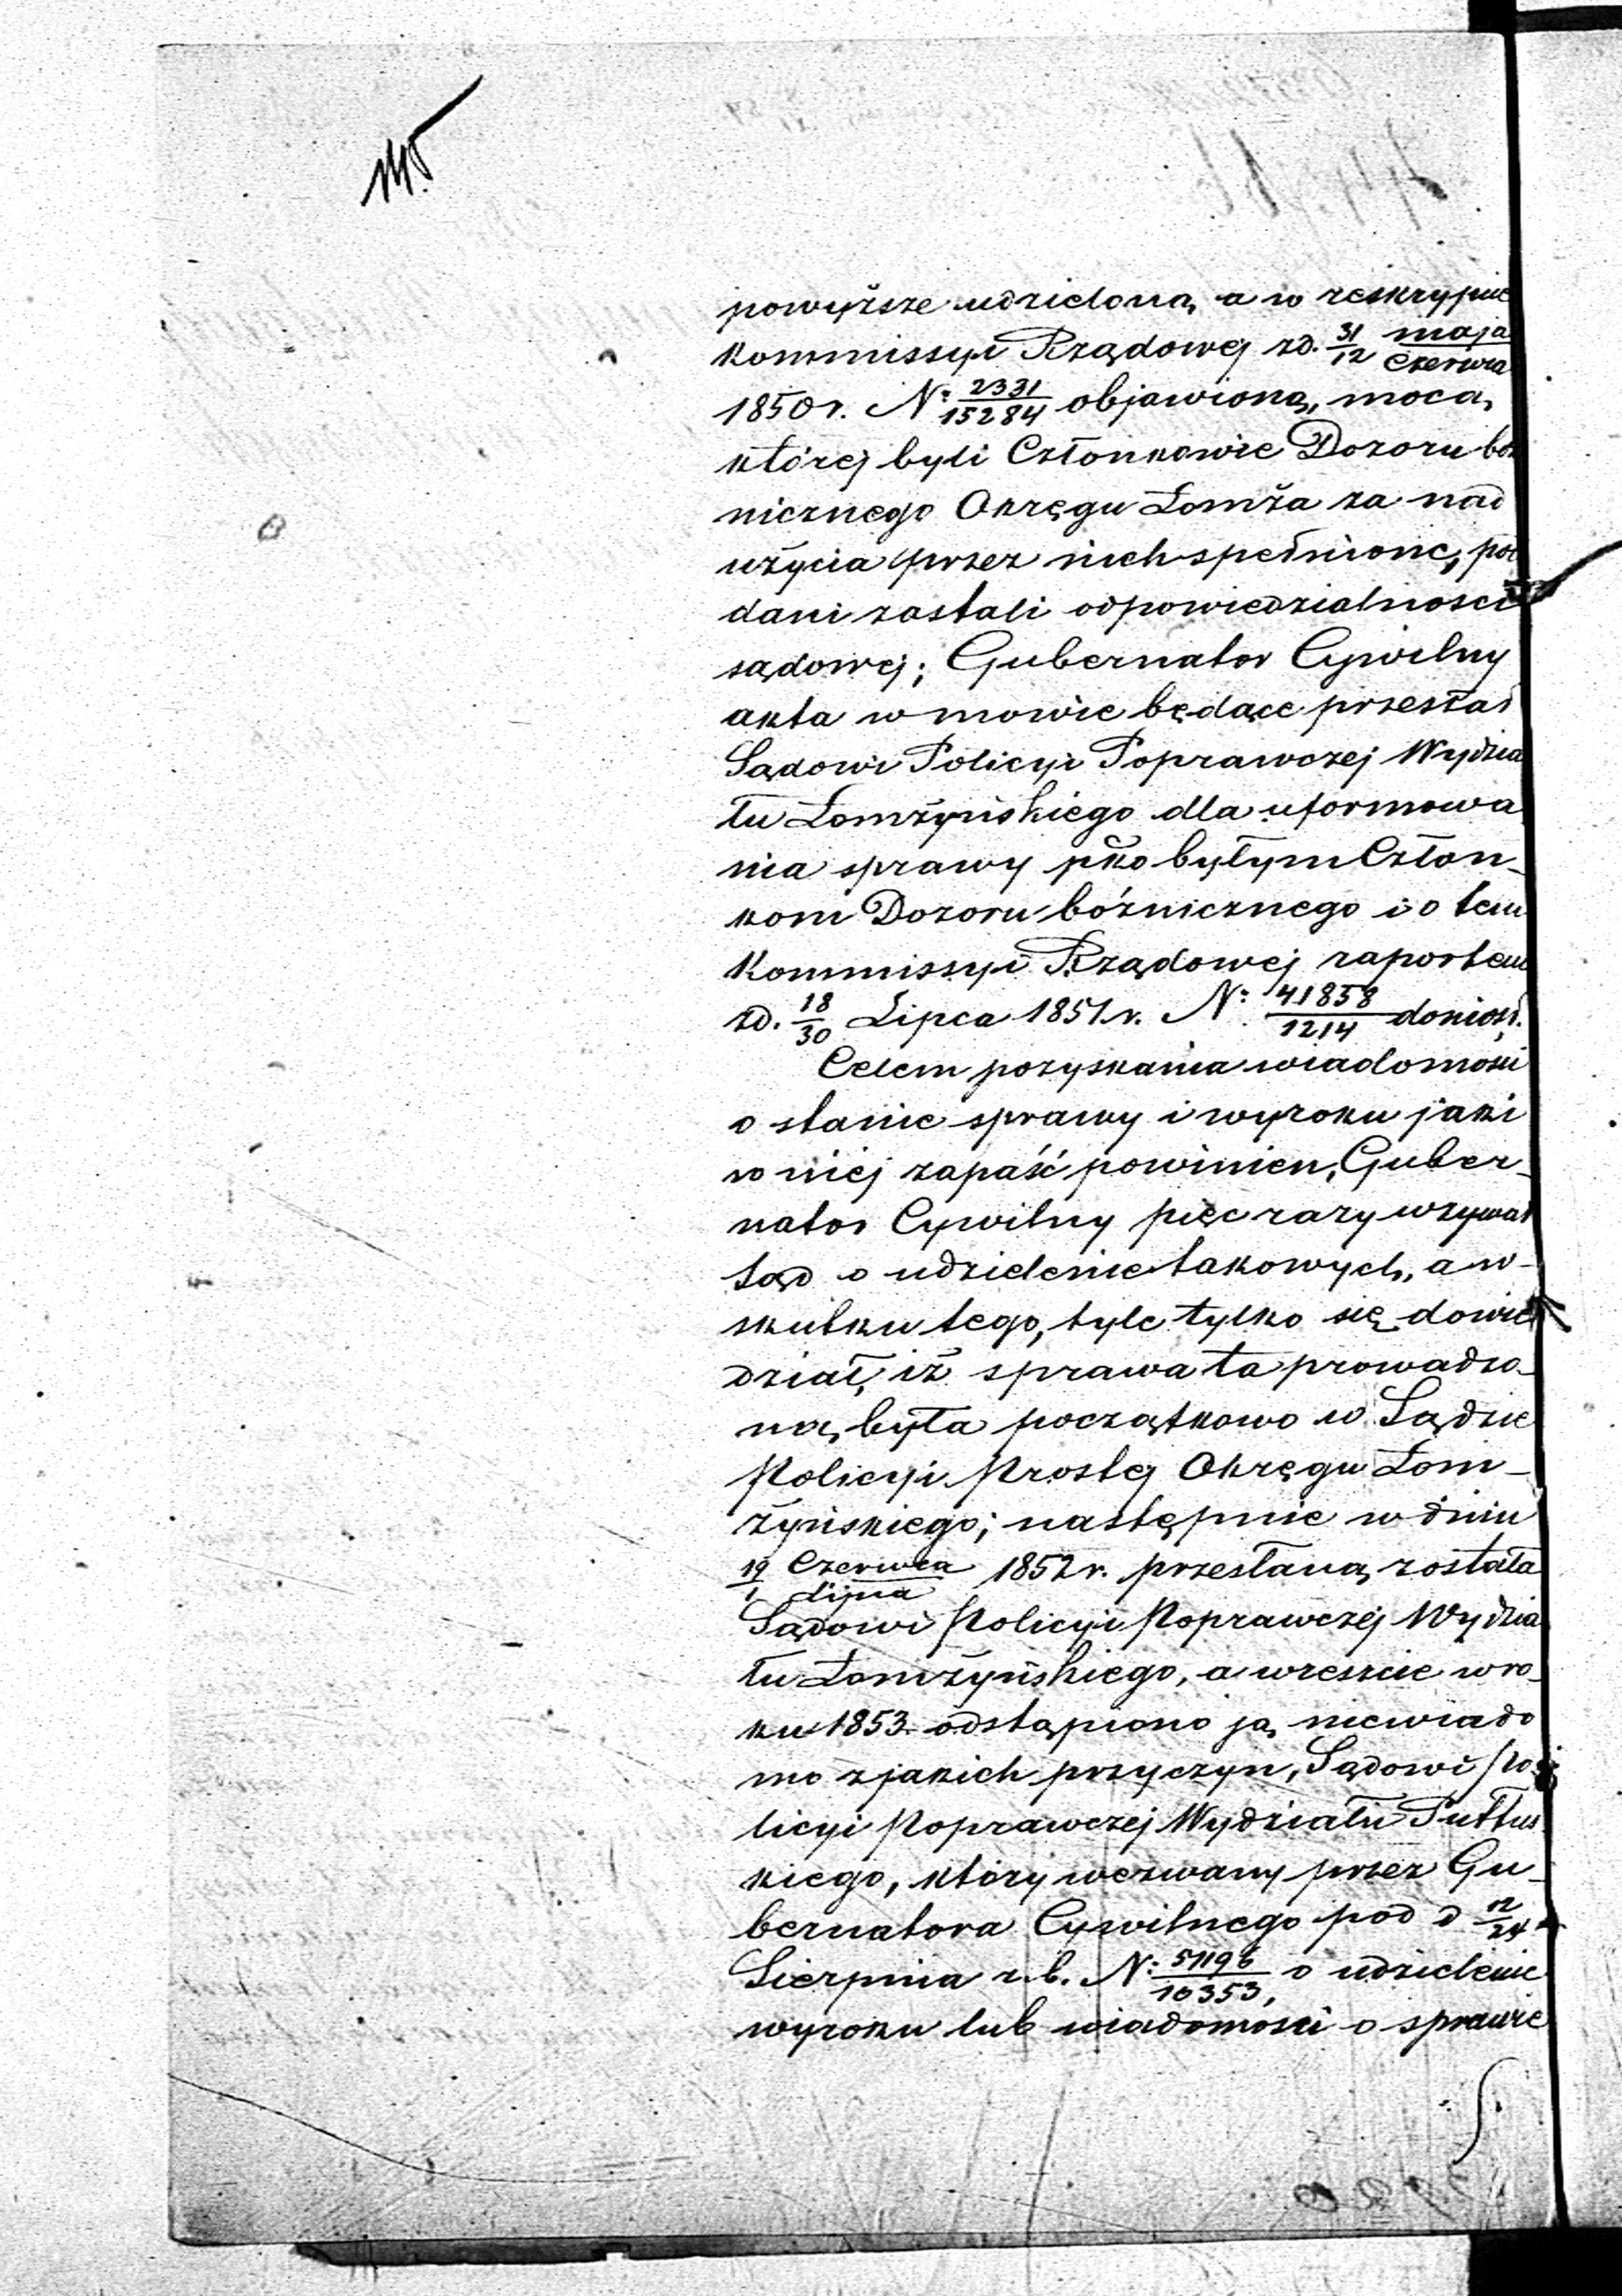 powyższe udzieloną, a w reskrypcie
Kommissyi Rządowej zd. 31/12 maja/Czerwca
1850 r. N: 2331/15284 objawioną, mocą,
której byli Członkowie Dozoru boż
nicznego Okręgu Łomża za nad
użycia przez nich spełnione, pod
dani zostali odpowiedzialności
sądowej; Gubernator Cywilny
akta w mowie będące przesłał
Sądowi Policyi Poprawczej Wydzia
łu Łomżyńskiego dla uformowa
nia sprawy pko byłym Człon-
kom Dozoru bóżnicznego i o tem
Kommissyi Rządowej raportem
zd. 18/30 Lipca 1851 r. N: 41858/1214 doniósł.
Celem pozyskania wiadomości
o stanie sprawy i wyroku jaki
w niej zapaść powinien, Guber-
nator Cywilny pięć razy wzywał
Sąd o udzielenie takowych, a w-
skutku tego, tyle tylko się dowie
dział, iż sprawa ta prowadzo-
ną była początkowo w Sądzie
Policyi Prostej Okręgu Łom-
żyńskiego; następnie w dniu
19/1 Czerwca/Lipca 1852 r. przesłaną została
Sądowi Policyi Poprawczej Wydzia
łu Łomżyńskiego, a wreszcie w ro-
ku 1853. odstąpiono ją, niewiado
mo z jakich przyczyn, Sądowi Po
licyi Poprawczej Wydziału Pułtus
kiego, który wezwany przez Gu-
bernatora Cywilnego pod d 12/24
Sierpnia r. b. N: 51196/10353, o udzielenie
wyroku lub wiadomości o sprawie